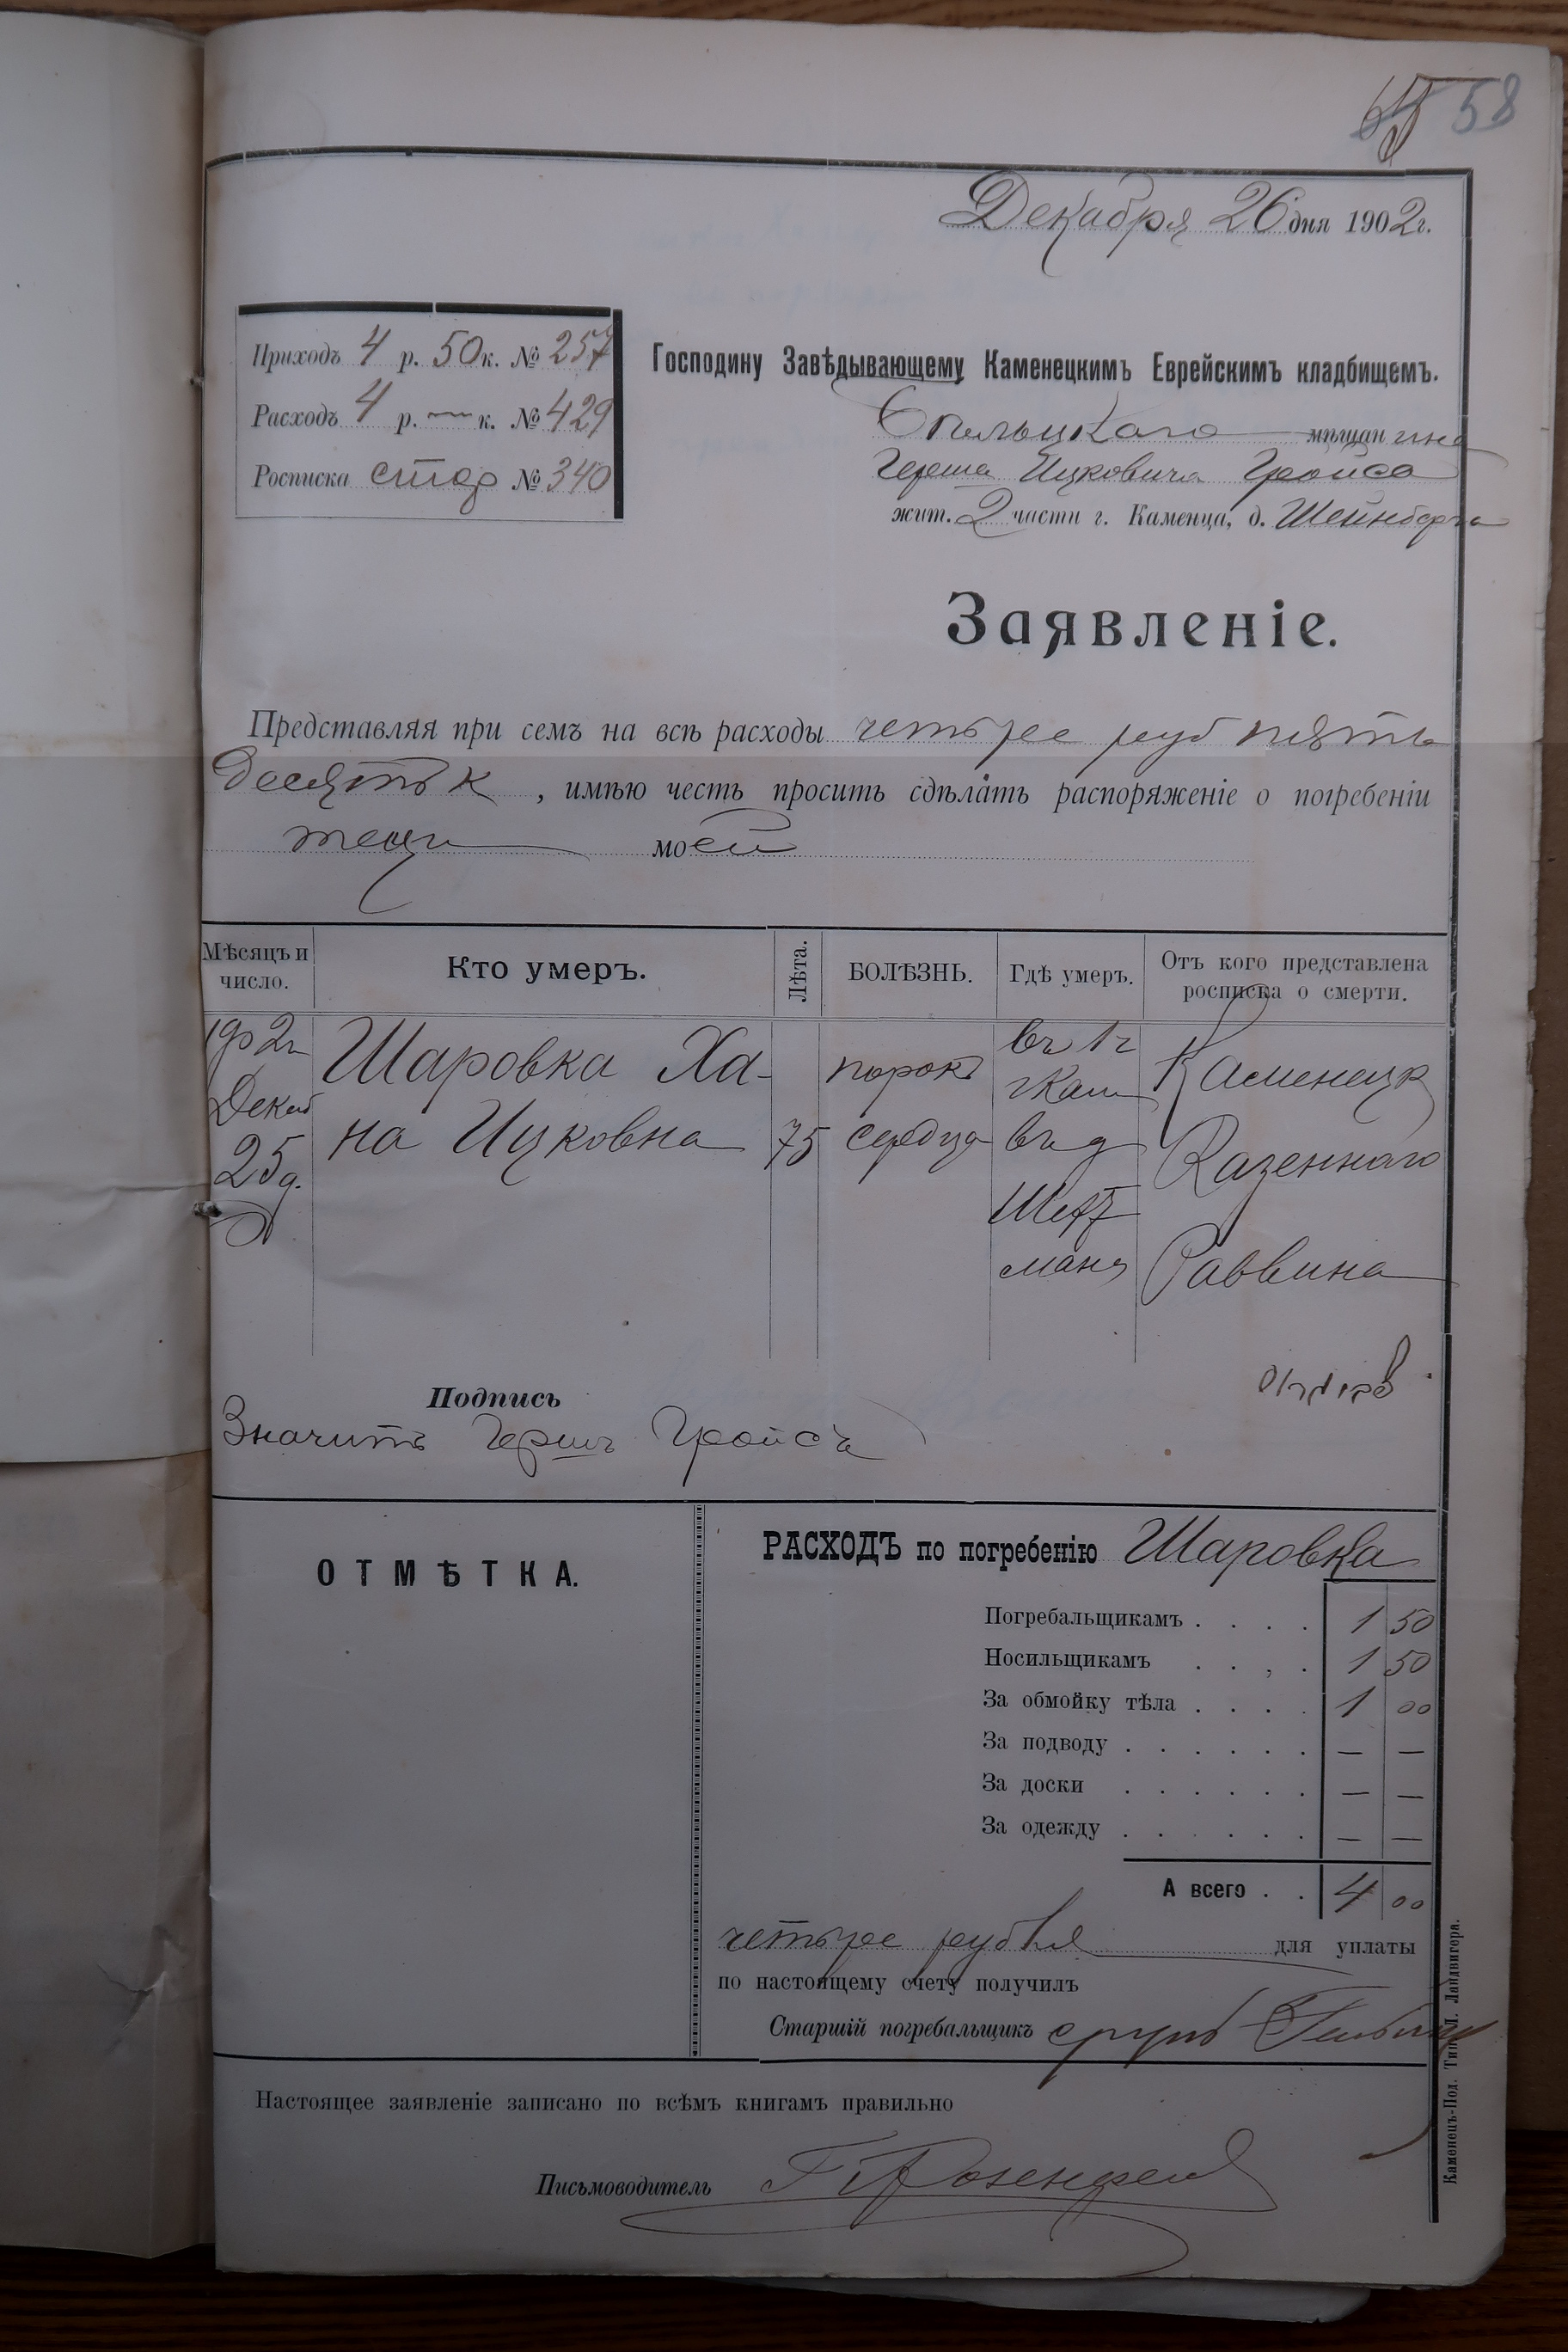 58
Декабря 26 дня 1902 г.
Приходъ 4 р. 50 к. № 257
Расходъ 4 р. — к. № 429
Росписка стар № 340
Господину Завѣдывающему Каменецкимъ Еврейскимъ кладбищемъ.
мѣщанина
Герша Ицковича Гройса
жит. 2 части г. Каменца, д. Шейнберга
Заявленіе.
Представляя при семъ на всѣ расходы четыре руб пять
десятъ к , имѣю честь просить сдѣлать распоряженіе о погребеніи
тещи моей
Мѣсяцъ и число. Кто умеръ. Лѣта. БОЛѢЗНЬ. Гдѣ умеръ. Отъ кого представлена росписка о смерти.
1902 г Шаровка Ха- порокъ въ 1 ч Каменецк
Декаб на Ицковна 75 сердца г Кам Казеннаго
25 д. въ д
Раввина
Подпись
Значитъ Гершъ Гройсъ
ОТМѢТКА.
РАСХОДЪ по погребенію Шаровка
Погребальщикамъ . . . . 1 50
Носильщикамъ . . , . 1 50
За обмойку тѣла . . . . 1 00
За подводу . . . . . . — —
За доски . . . . . . — —
За одежду . . . . . . — —
А всего . . 4 00
четыре рубля для уплаты
по настоящему счету получилъ
Старшій погребальщикъ
Настоящее заявленіе записано по всѣмъ книгамъ правильно
Письмоводитель Розенфельд
Каменецъ-Под. Тип. Л. Ландвигера.